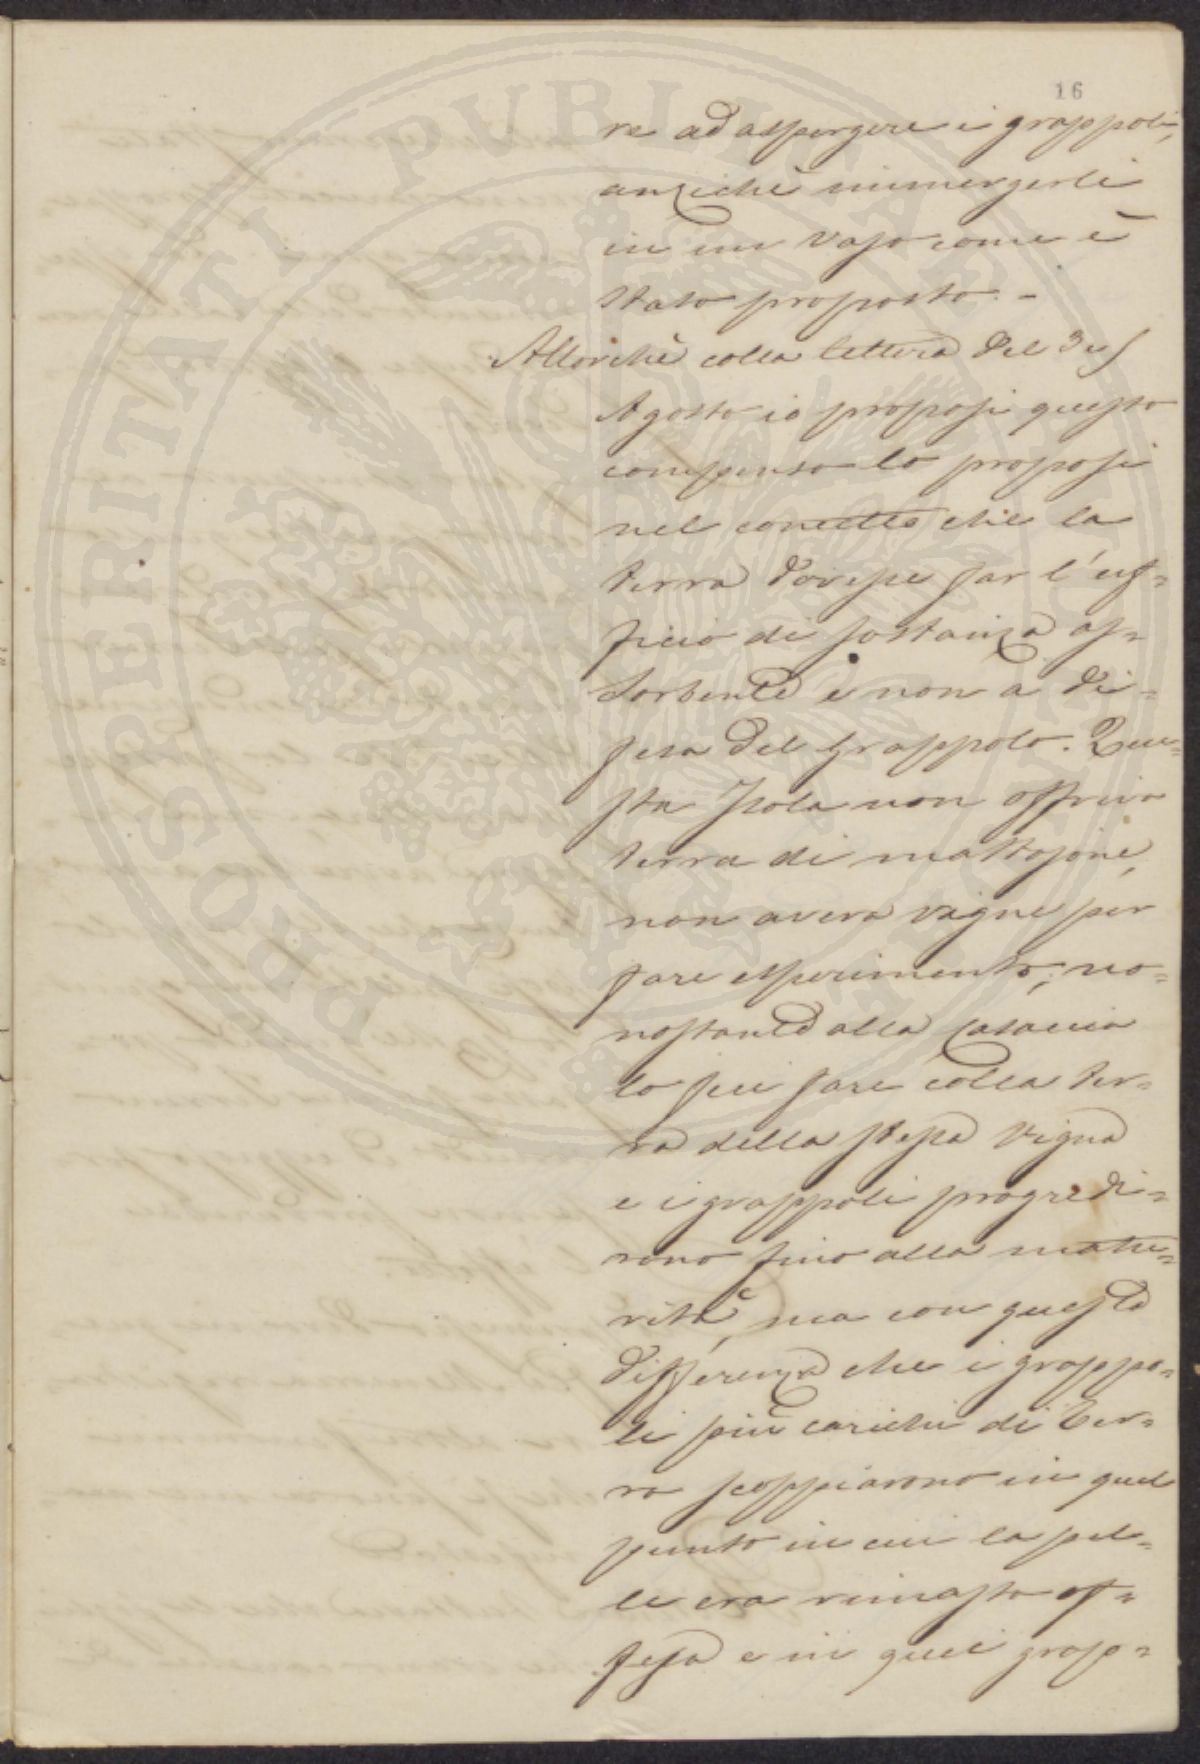 16
re ad aspergere i grappoli,
anzichè immergerli
in un vaso come è
stato proposto. -
Allorchè colla lettera del 3 es
Agosto io proposi questo
compenso lo proposi
nel concetto che la
terra dovesse far l'uf=
ficio di sostanza as=
sorbente e non a di=
fesa del Grappolo. Que=
sta Isola non offriva
terra di mattajone,
non aveva vigne per
fare esperimento; no=
nostante alla Casaccia
lo feci fare colla ter=
ra della stessa vigna
e i grappoli progredi=
rono fino alla matu=
rità, ma con questa
differenza che i grappo=
li più carichi di ter=
ra scoppiarono in quel
punto in cui la pel=
le era rimasta of=
fesa e in quei grap=
PROSPERITATI PUBLICAE AUGENDAE